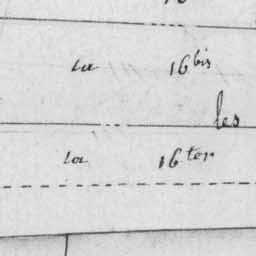 la 16 bis
les
la 16 ter